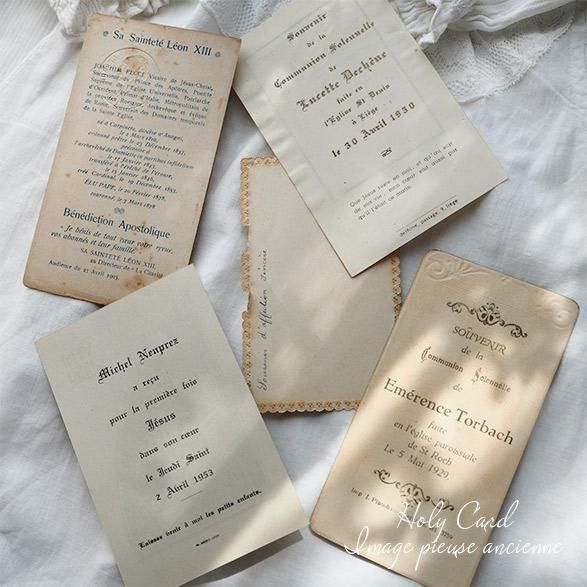 Sa Sainteté Léon XIII
JOACHIM PECCI Vicaire de Jésus-Christ,
Successeur du Prince des Apôtres, Pontife
Suprême de l'Église Universelle, Patriarche
d'Occident, Primat d'Italie, Métropolitain de
la province Romaine, Archevêque et
de Rome, Souverain des Domaines temporels
de la Sainte Église.
né à Carpineto, diocèse d'Anagni,
le 2 Mars 1810,
ordonné prêtre le 23 Décembre 1837,
préconisé
l'archevêché de Damiette in partibus infidelium
le 27 janvier 1843,
transféré à l'évêché de Pérouse,
le 19 janvier 1846,
créé Cardinal, le 19 Décembre 1853,
ÉLU PAPE, le 20 Février 1878,
couronné, le 3 Mars 1878
Bénédiction Apostolique
« Je bénis de tout cœur votre revue,
vos abonnés et leur famille.
SA SAINTETÉ LÉON XIII,
au Directeur de « La Charité
Audience du 27 Avril 1903.
Souvenir
de la
Communion Solennelle
de
Lucette Dechêne
faite en
l'Église St Denis
à Liége
le 30 Avril 1930
Que Jésus soit
de ma vie, mon cœur
qu'il l'était ce matin.
Liége
Souvenir d'affection
Michel Neuprez
a reçu
pour la première fois
Jésus
dans son cœur
le Jeudi Saint
2 Avril 1953
Laissez venir à moi les petits enfants.
SOUVENIR
de la
Communion Solennelle
de
Emérence Torbach
faite
en l'église paroissiale
de St Roch
Le 5 Mai 1929
Imp.
Holy Card
Image pieuse ancienne